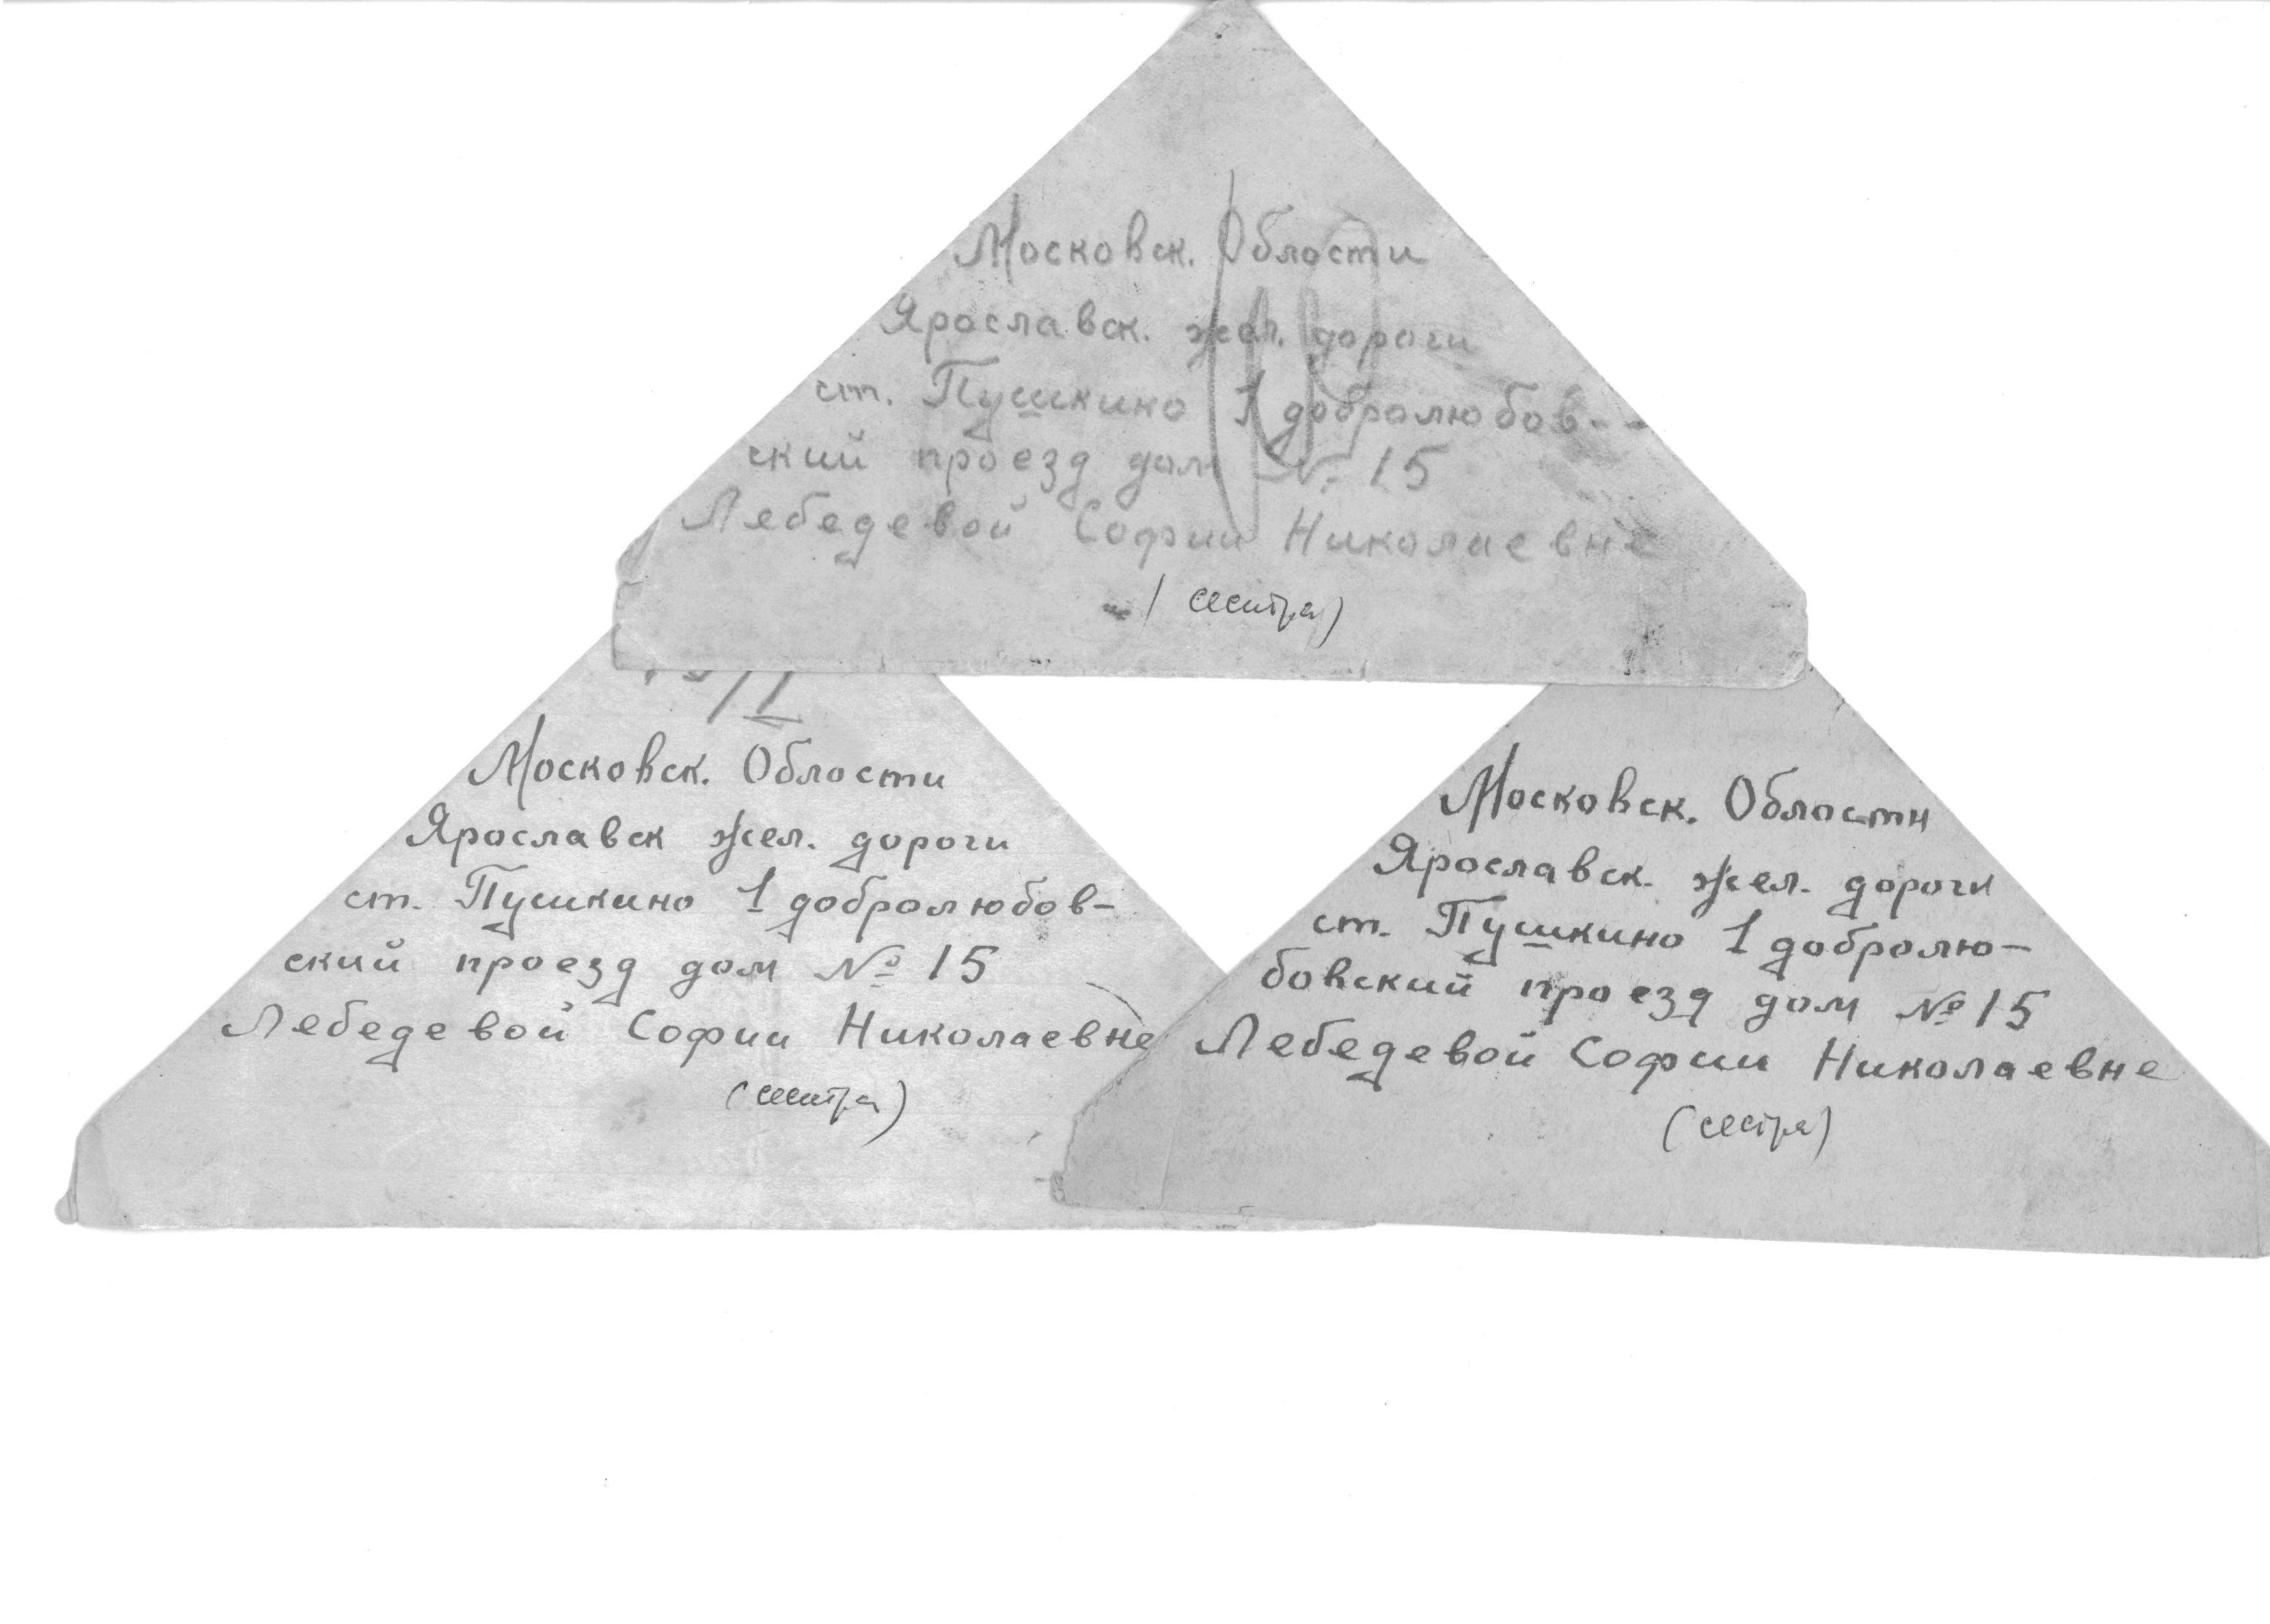 Московск. Области
Ярославск. жел. дороги
ст. Пушкино 1 добролюбов-
ский проезд дом № 15
Лебедевой Софии Николаевне
(сестра)
Московск. Области
Ярославск жел. дороги
ст. Пушкино 1 добролюбов-
ский проезд дом № 15
Лебедевой Софии Николаевне
(сестра)
Московск. Области
Ярославск. жел. дороги
ст. Пушкино 1 добролю-
бовский проезд дом № 15
Лебедевой Софии Николаевне
(сестра)